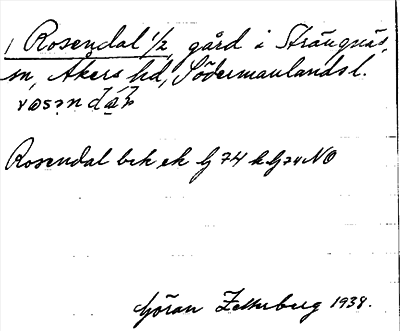 1 Rosendal 1/2, gård i Strängnäs,
sn, Åkers hd, Södermanlands l.
Rosendal bek ek G 74 k Gj 74 NO
Göran Zetterberg 1938.